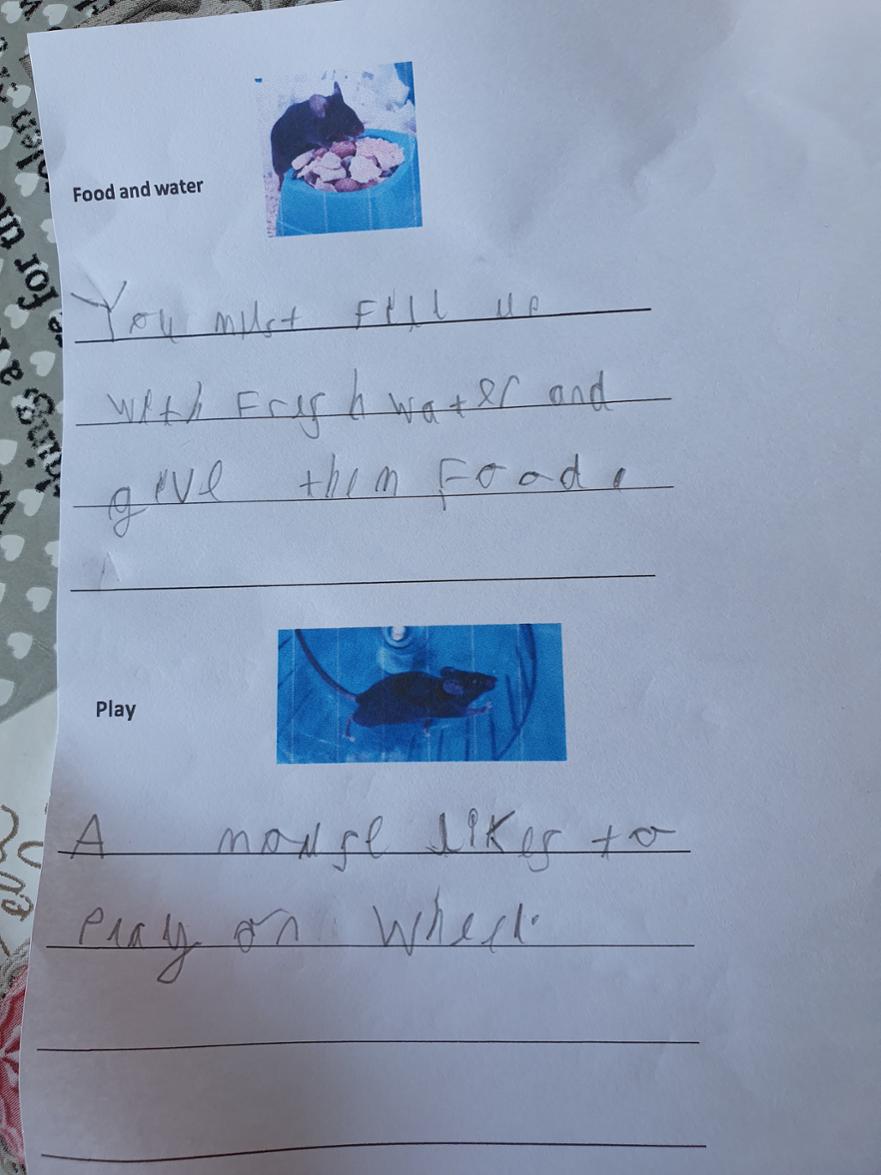 Food and water
You must Fill up
with Fresh water and
give them Food.
Play
A mouse likes to
Play on wheel.